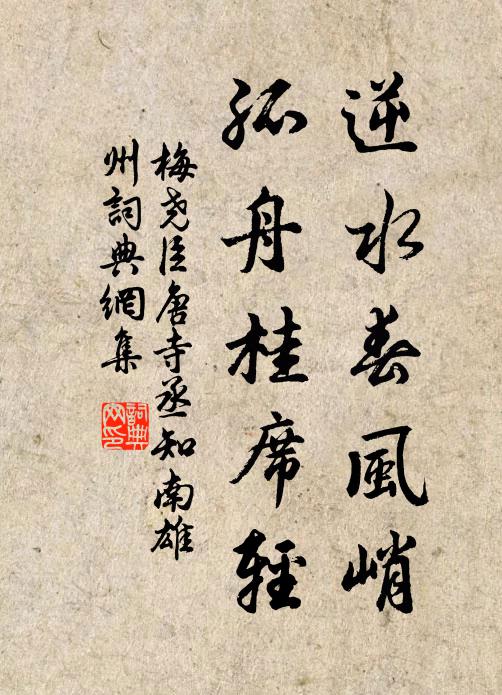 逆水春風峭
孤舟桂席輕
梅尧臣唐寺丞知南雄
州詞典網集
詞典网印